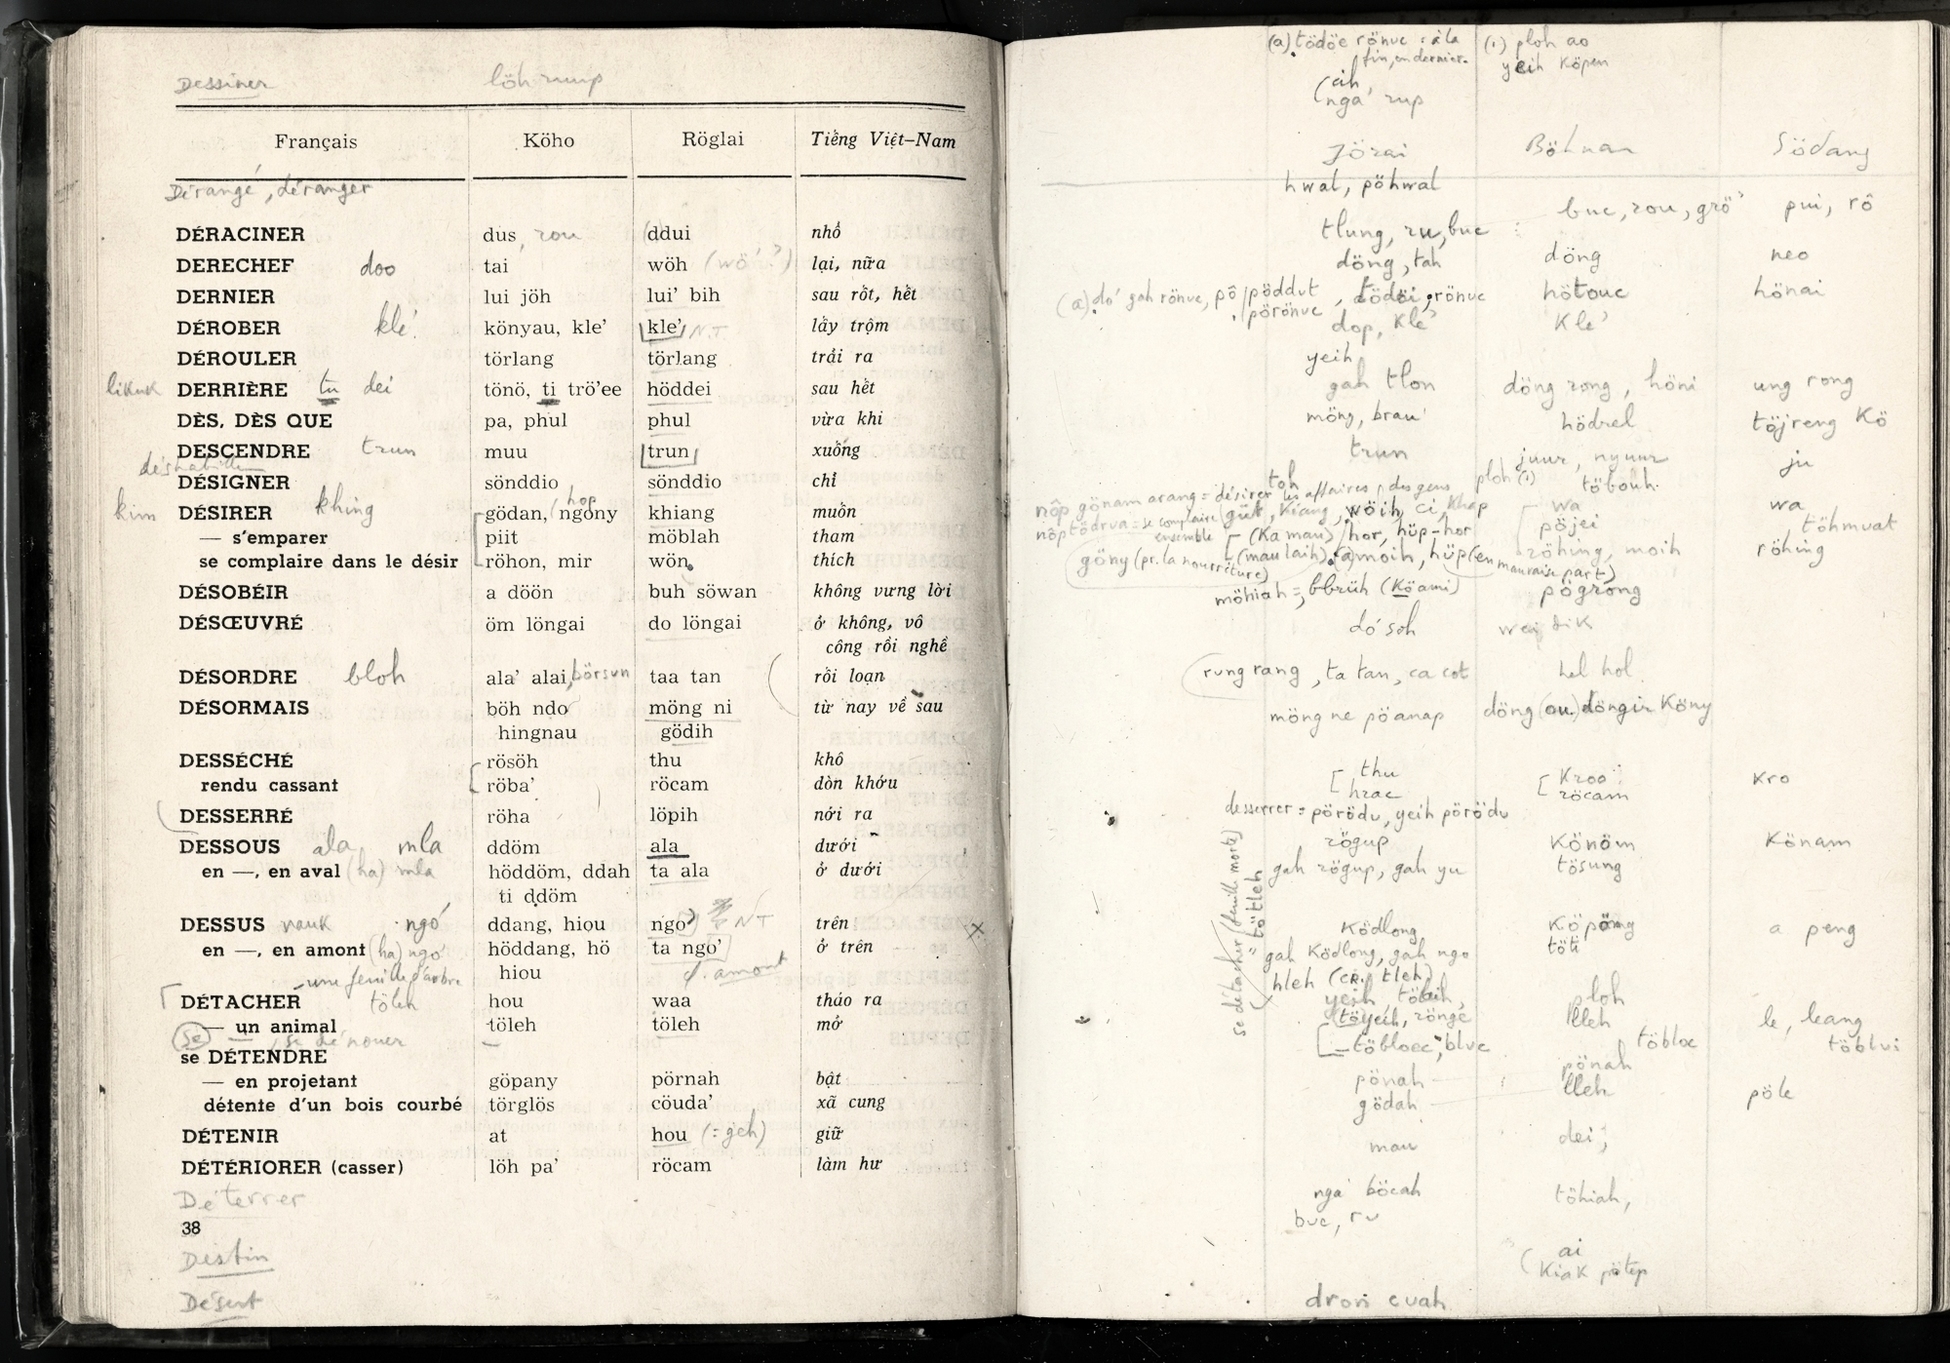 Dessiner löh rup
Français Köho Röglai Tiếng Việt–Nam
Dérangé, déranger
DÉRACINER dus, rou ddui nhổ
DERECHEF doo tai wöh (wö'?) lại, nữa
DERNIER lui jöh lui' bih sau rốt, hết
DÉROBER klé' könyau, kle' kle' N.T lấy trộm
DÉROULER törlang törlang trải ra
likuk DERRIÈRE tu dei tönö, ti trö'ee höddei sau hết
DÈS, DÈS QUE pa, phul phul vừa khi
DESCENDRE trun muu trun xuống
déshabiller
DÉSIGNER sönddio sönddio chỉ
hop
kim DÉSIRER khing gödan, ngöny khiang muốn
— s'emparer piit möblah tham
se complaire dans le désir röhon, mir wön thích
DÉSOBÉIR a döön buh söwan không vưng lời
DÉSŒUVRÉ öm löngai do löngai ở không, vô
công rồi nghề
DÉSORDRE bloh ala' alai, börsun taa tan rối loạn
DÉSORMAIS böh ndo möng ni từ nay về sau
hingnau gödih
DESSÉCHÉ rösöh thu khô
rendu cassant röba' röcam dòn khớu
DESSERRÉ röha löpih nới ra
DESSOUS ala mla ddöm ala dưới
en —, en aval (ha) mla höddöm, ddah ta ala ở dưới
ti ddöm
DESSUS nauk ngó ddang, hiou ngo' NT trên
en —, en amont (ha) ngó höddang, hö ta ngo' ở trên
hiou d'amont
une feuille d'arbre
DÉTACHER töleh hou waa tháo ra
— un animal töleh töleh mở
(se) se dénouer
se DÉTENDRE
— en projetant göpany pörnah bật
détente d'un bois courbé törglös cöuda' xã cung
DÉTENIR at hou (= geh) giữ
DÉTÉRIORER (casser) löh pa' röcam làm hư
Déterrer
38
Destin
Désert
(a) tödöe rönuc : à la (1) ploh ao
fin, en dernier. yeih Köpen
cih,
nga' rup
Jörai Böhnar Södang
hwal, pöhwal
buc, rou, grö' pui, rô
tlung, ru, buc
döng, tah döng neo
(a) do' gah rönuc, pô pöddut, tödöi, rönuc hötouc hönai
pörönuc
dop, Kle' Kle'
yeih
gah tlon döng rong, höni ung rong
möng, brau' hödrel töjreng Kö
trun juur, nyuur ju
toh ploh (1) töbouh
nôp gönam arang = désirer les affaires des gens
güt, Kiang, wöih, ci, Khap wa wa
nôp tödrua = se complaire ensemble (Ka mau) hor, hüp-hor pöjei töhmuat
göny (pr. la nourriture) (mau laih) (a) moih, hüp (en mauvaise part) röhing, moih röhing
möhiah =, bbrüh (Köami) pögrong
dó soh
rung rang, ta tan, ca cot hel hol
möng ne pöanap döng (ou) döngir Köny
thu Kroo Kro
hrac röcam
desserrer = pörödu, yeih pörödu
rögup Könöm Könam
gah rögup, gah yu tösung
se détacher (feuille morte)
= tötleh
Ködlong Köpöng a peng
gah Ködlong, gah ngo töti
hleh (cr. tleh)
yeih ploh
töyeih, rönge lleh le, leang
töbloec, bluc töbloc töblui
pönah pönah
gödah lleh pöle
mau dei,
nga' böcah töhiah,
buc, ru
ai
Kiak pötep
dron cuah